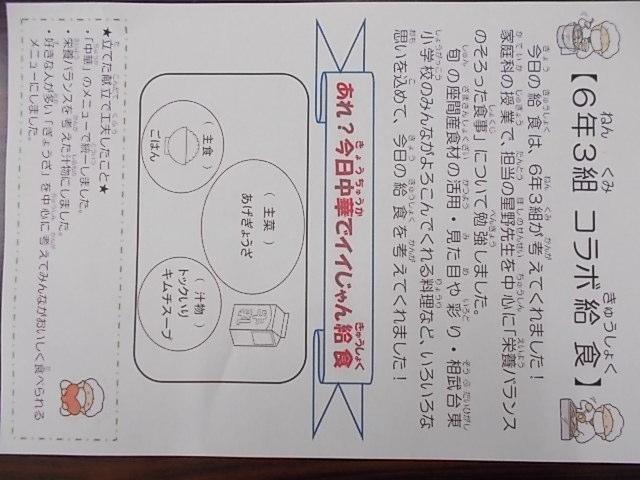 【6年3組 コラボ給食】
今日の給食は、6年3組が考えてくれました!
家庭科の授業で、担当の星野先生を中心に「栄養バランス
のそろった食事」について勉強しました。
旬の座間産食材の活用・見た目や彩り・相武台東
小学校のみんながよろこんでくれる料理など、いろいろな
思いを込めて、今日の給食を考えてくれました!
あれ?今日中華でイイじゃん給食
(主菜)
あげぎょうざ
主食
ごはん
(汁物)
トックいり
キムチスープ
★立てた献立で工夫したこと★
・「中華」のメニューで統一しました。
・栄養バランスを考えた汁物にしました。
・好きな人が多い「ぎょうざ」を中心に考えてみんながおいしく食べられる
メニューにしました。